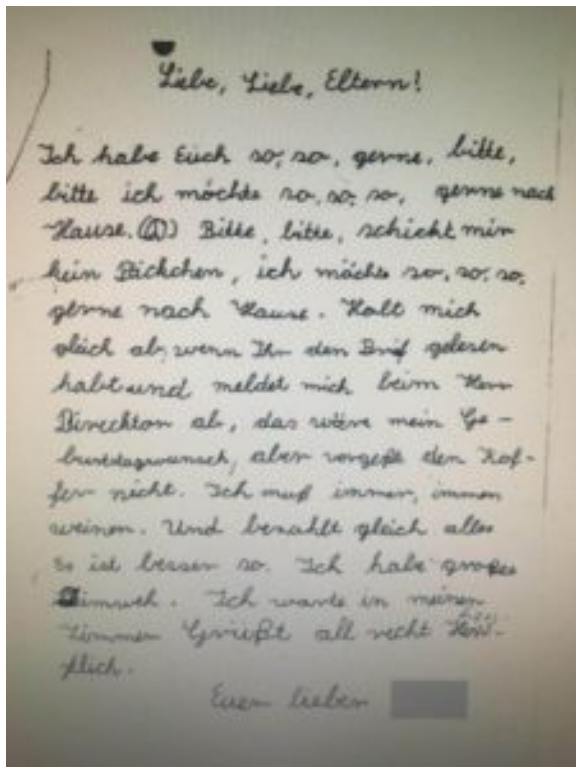 Liebe, Liebe, Eltern!
Ich habe Euch so, so, gerne, bitte,
bitte ich möchte so, so, so, gerne nach
Hause. Bitte, bitte, schickt mir
kein Päckchen, ich möchte so, so, so,
gerne nach Hause. Holt mich
gleich ab, wenn Ihr den Brief gelesen
habt und meldet mich beim Herr
Direcktor ab, das wäre mein Ge-
burtstagwunsch, aber vergeßt den Kof-
fer nicht. Ich muß immer, immer
weinen. Und bezahlt gleich alles
Es ist besser so. Ich habe großes
Heimweh. Ich warte in meinen
Zimmer Grüßt all recht Herz-
lich.
Euer lieber